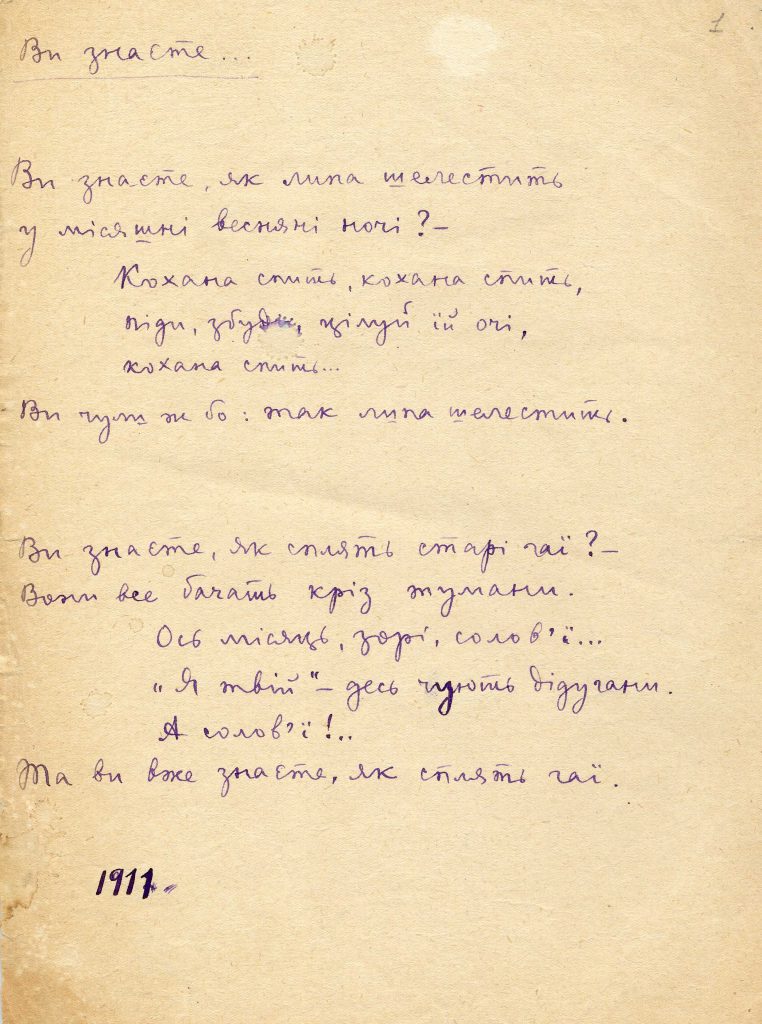 1
Ви знаєте...
Ви знаєте, як липа шелестить
у місяшні весняні ночі? –
Кохана спить, кохана спить,
піди, збуди, цілуй їй очі,
кохана спить...
Ви чули ж бо: так липа шелестить.
Ви знаєте, як сплять старі гаї? –
Вони все бачать кріз тумани.
Ось місяць, зорі, солов'ї...
„Я твій" – десь чують дідугани.
А солов'ї!..
Та ви вже знаєте, як сплять гаї.
1911.